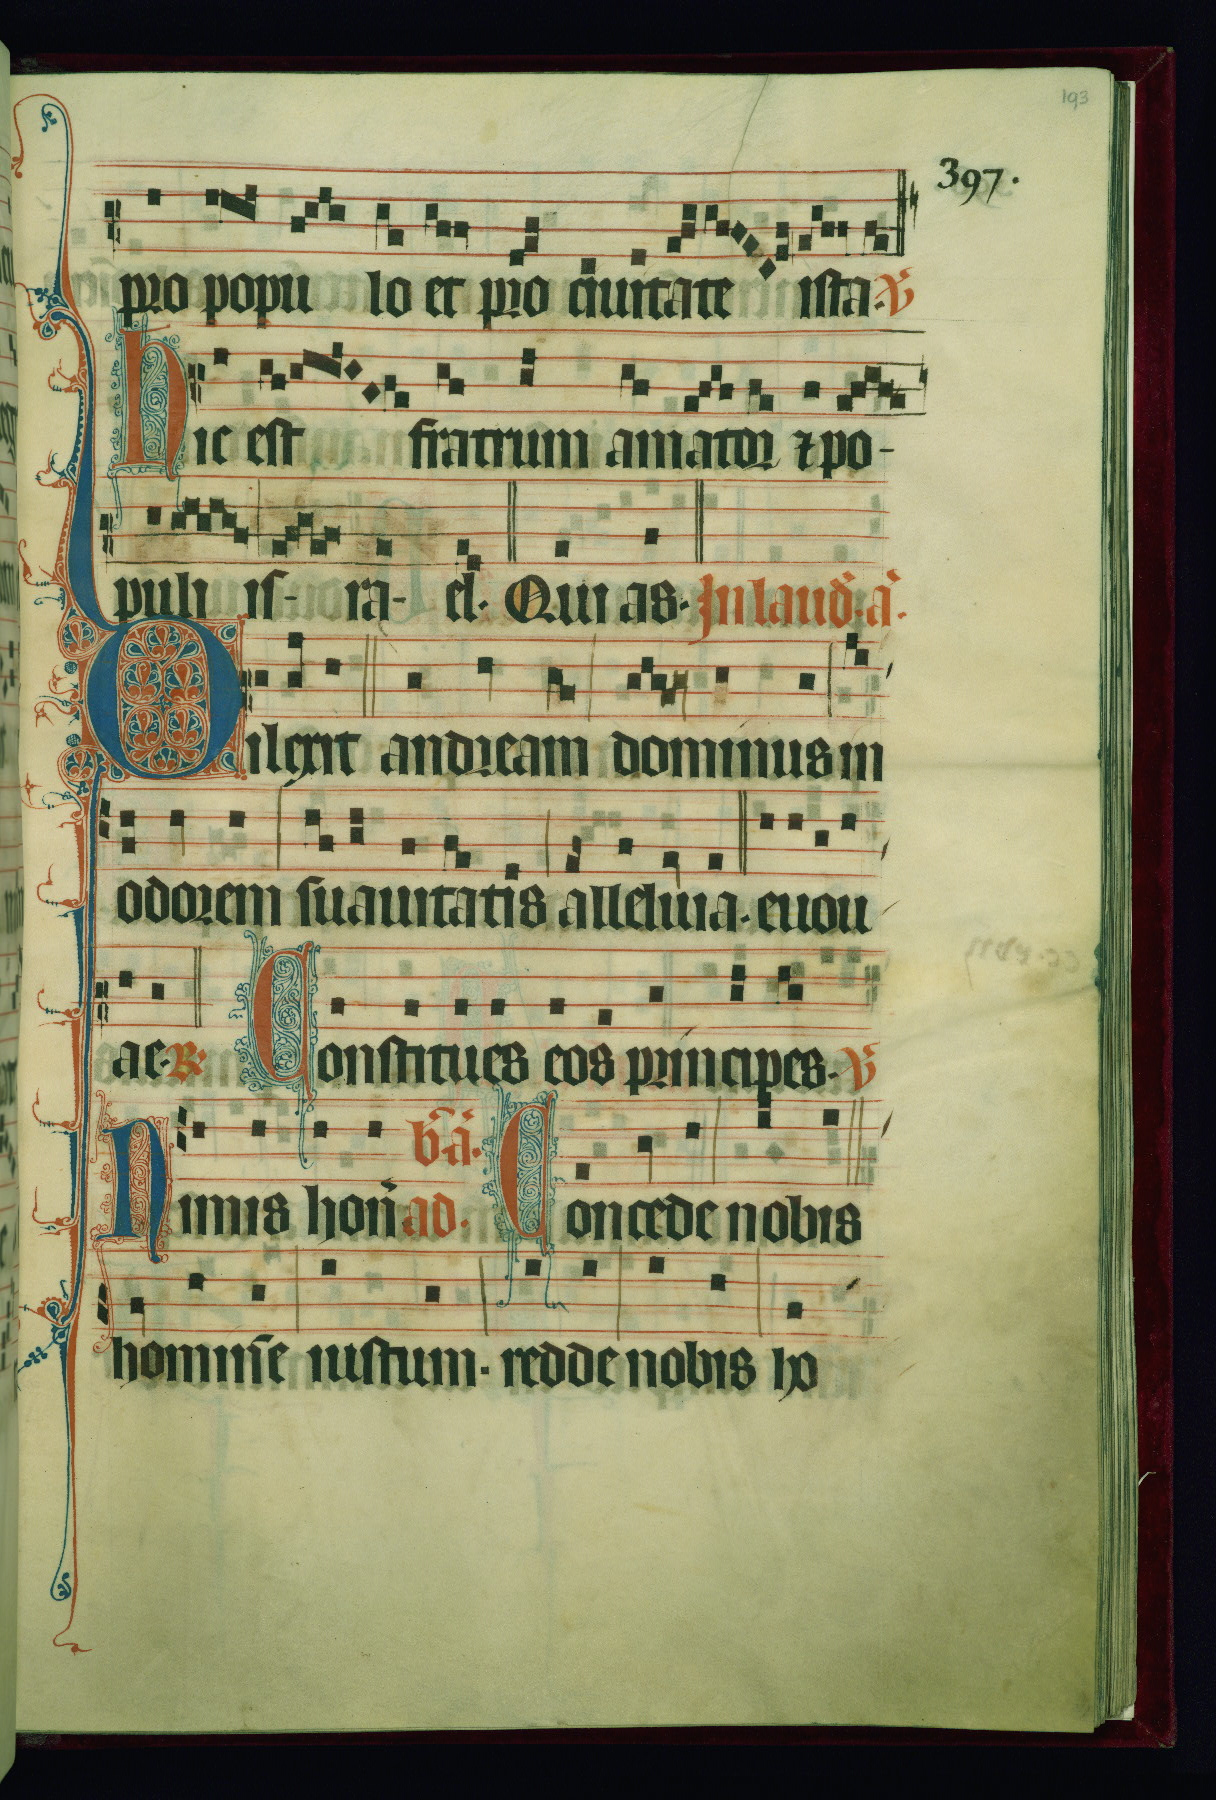 193
397.
pro popu lo et pro ciuitate ista. V̄
Hic est fratrum amator ⁊ po-
puli is- ra- el. Qui as. In laud̄. ā.
Dilexit andream dominus in
odorem suauitatis alleluia. euou
ae. R. Constitues eos principes. V̄
Nimis hon̄ ad. b̄. ā. Concede nobis
hominē iustum. redde nobis ho